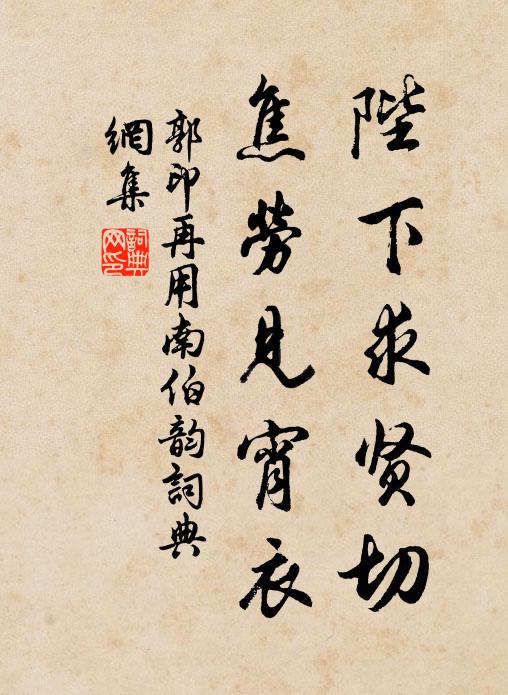 陛下求贤切
焦劳見宵衣
郭印再用南伯韵詞典
網集
詞典網印